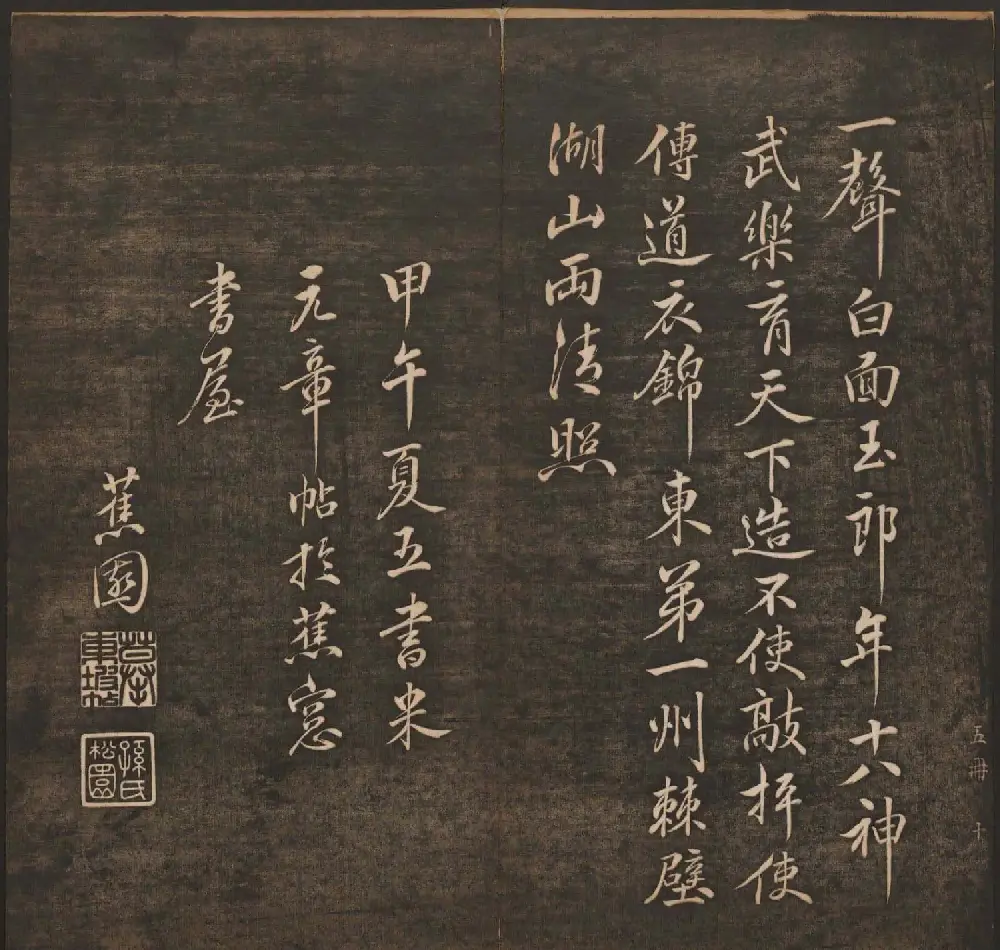 一聲白面玉郎年十八神
武樂育天下造不使敲抨使
傳道衣錦東第一州棘壁
湖山兩清照
甲午夏五書米
元章帖於蕉窓
書屋
蕉園
東坡帖
孫氏松園
五冊 十